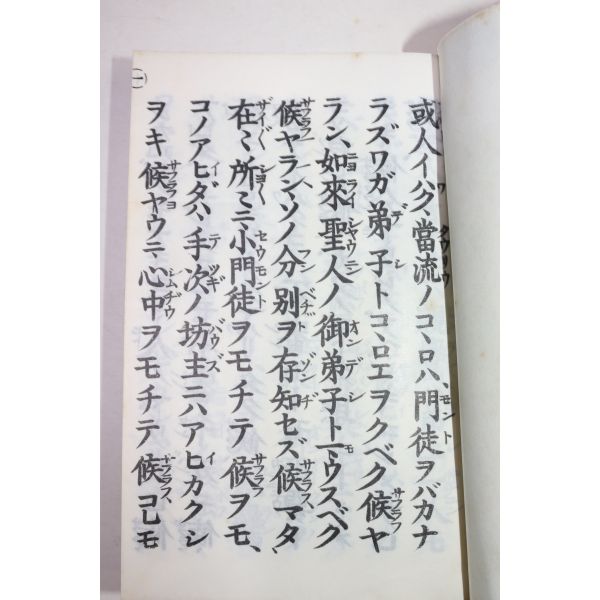 或人イハク、當流ノコヽロハ、門徒ヲバカナ
ラズワガ弟子トコヽロエヲクベク候ヤ
ラン、如來聖人ノ御弟子トマウスベク
候ヤラン、ソノ分別ヲ存知セズ候、マタ、
在〻所〻ニ小門徒ヲモチテ候ヲモ、
コノアヒダハ手次ノ坊主ニハアヒカクシ
ヲキ候ヤウニ心中ヲモチテ候、コレモ
(一)